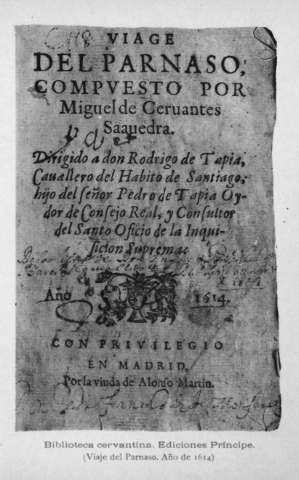 VIAGE
DEL PARNASO,
COMPVESTO POR
Miguel de Ceruantes
Saauedra.
Dirigido a don Rodrigo de Tapia,
Cauallero del Habito de Santiago,
hijo del señor Pedro de Tapia Oy-
dor de Consejo Real, y Consultor
del Santo Oficio de la Inqui-
sicion Suprema.
Año 1614.
CON PRIVILEGIO
EN MADRID,
Por la viuda de Alonso Martin.
Biblioteca cervantina. Ediciones Príncipe.
(Viaje del Parnaso. Año de 1614)